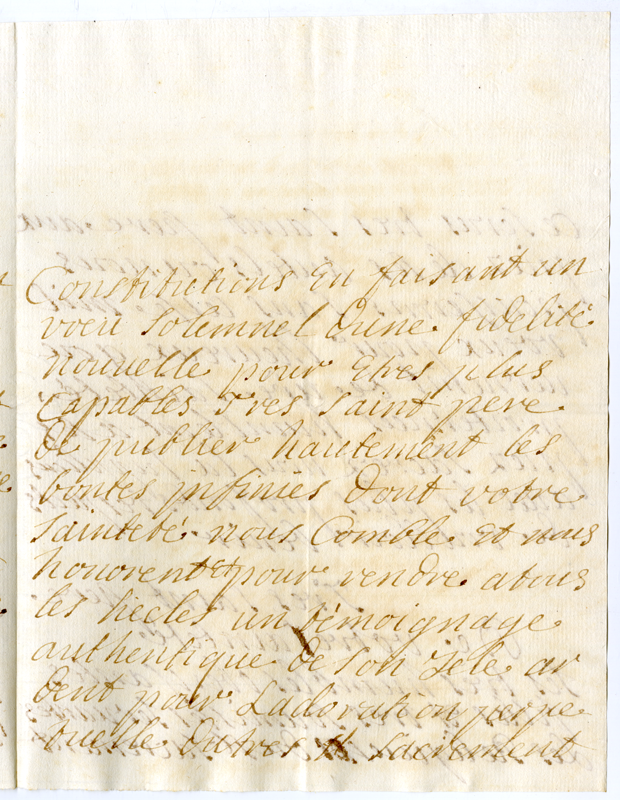 Constitutions En faisant un
voeu solemnel dune fidelité
nouvelle pour Etres plus
capables Tres saint pere
de publier hautement les
bontes infinies dont votre
sainteté nous Comble Et nous
honorent Et pour rendre atous
les siecles un témoignage
authentique de son zele ar
dent pour Ladoration perpe
tuelle dutres st sacrement